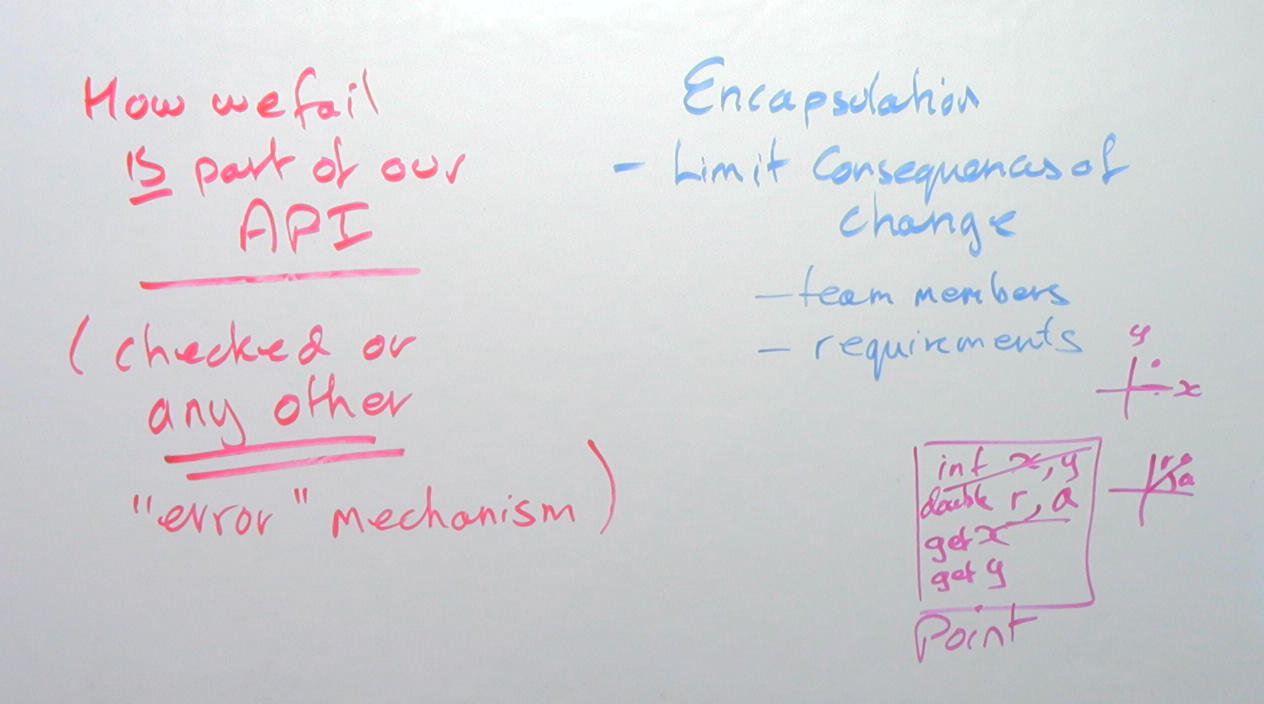 How we fail
IS part of our
API
(checked or
any other
"error" mechanism)
Encapsulation
- Limit Consequences of
change
- team members
- requirements
y
x
int x, y
double r, a
get x
get y
Point
r
a